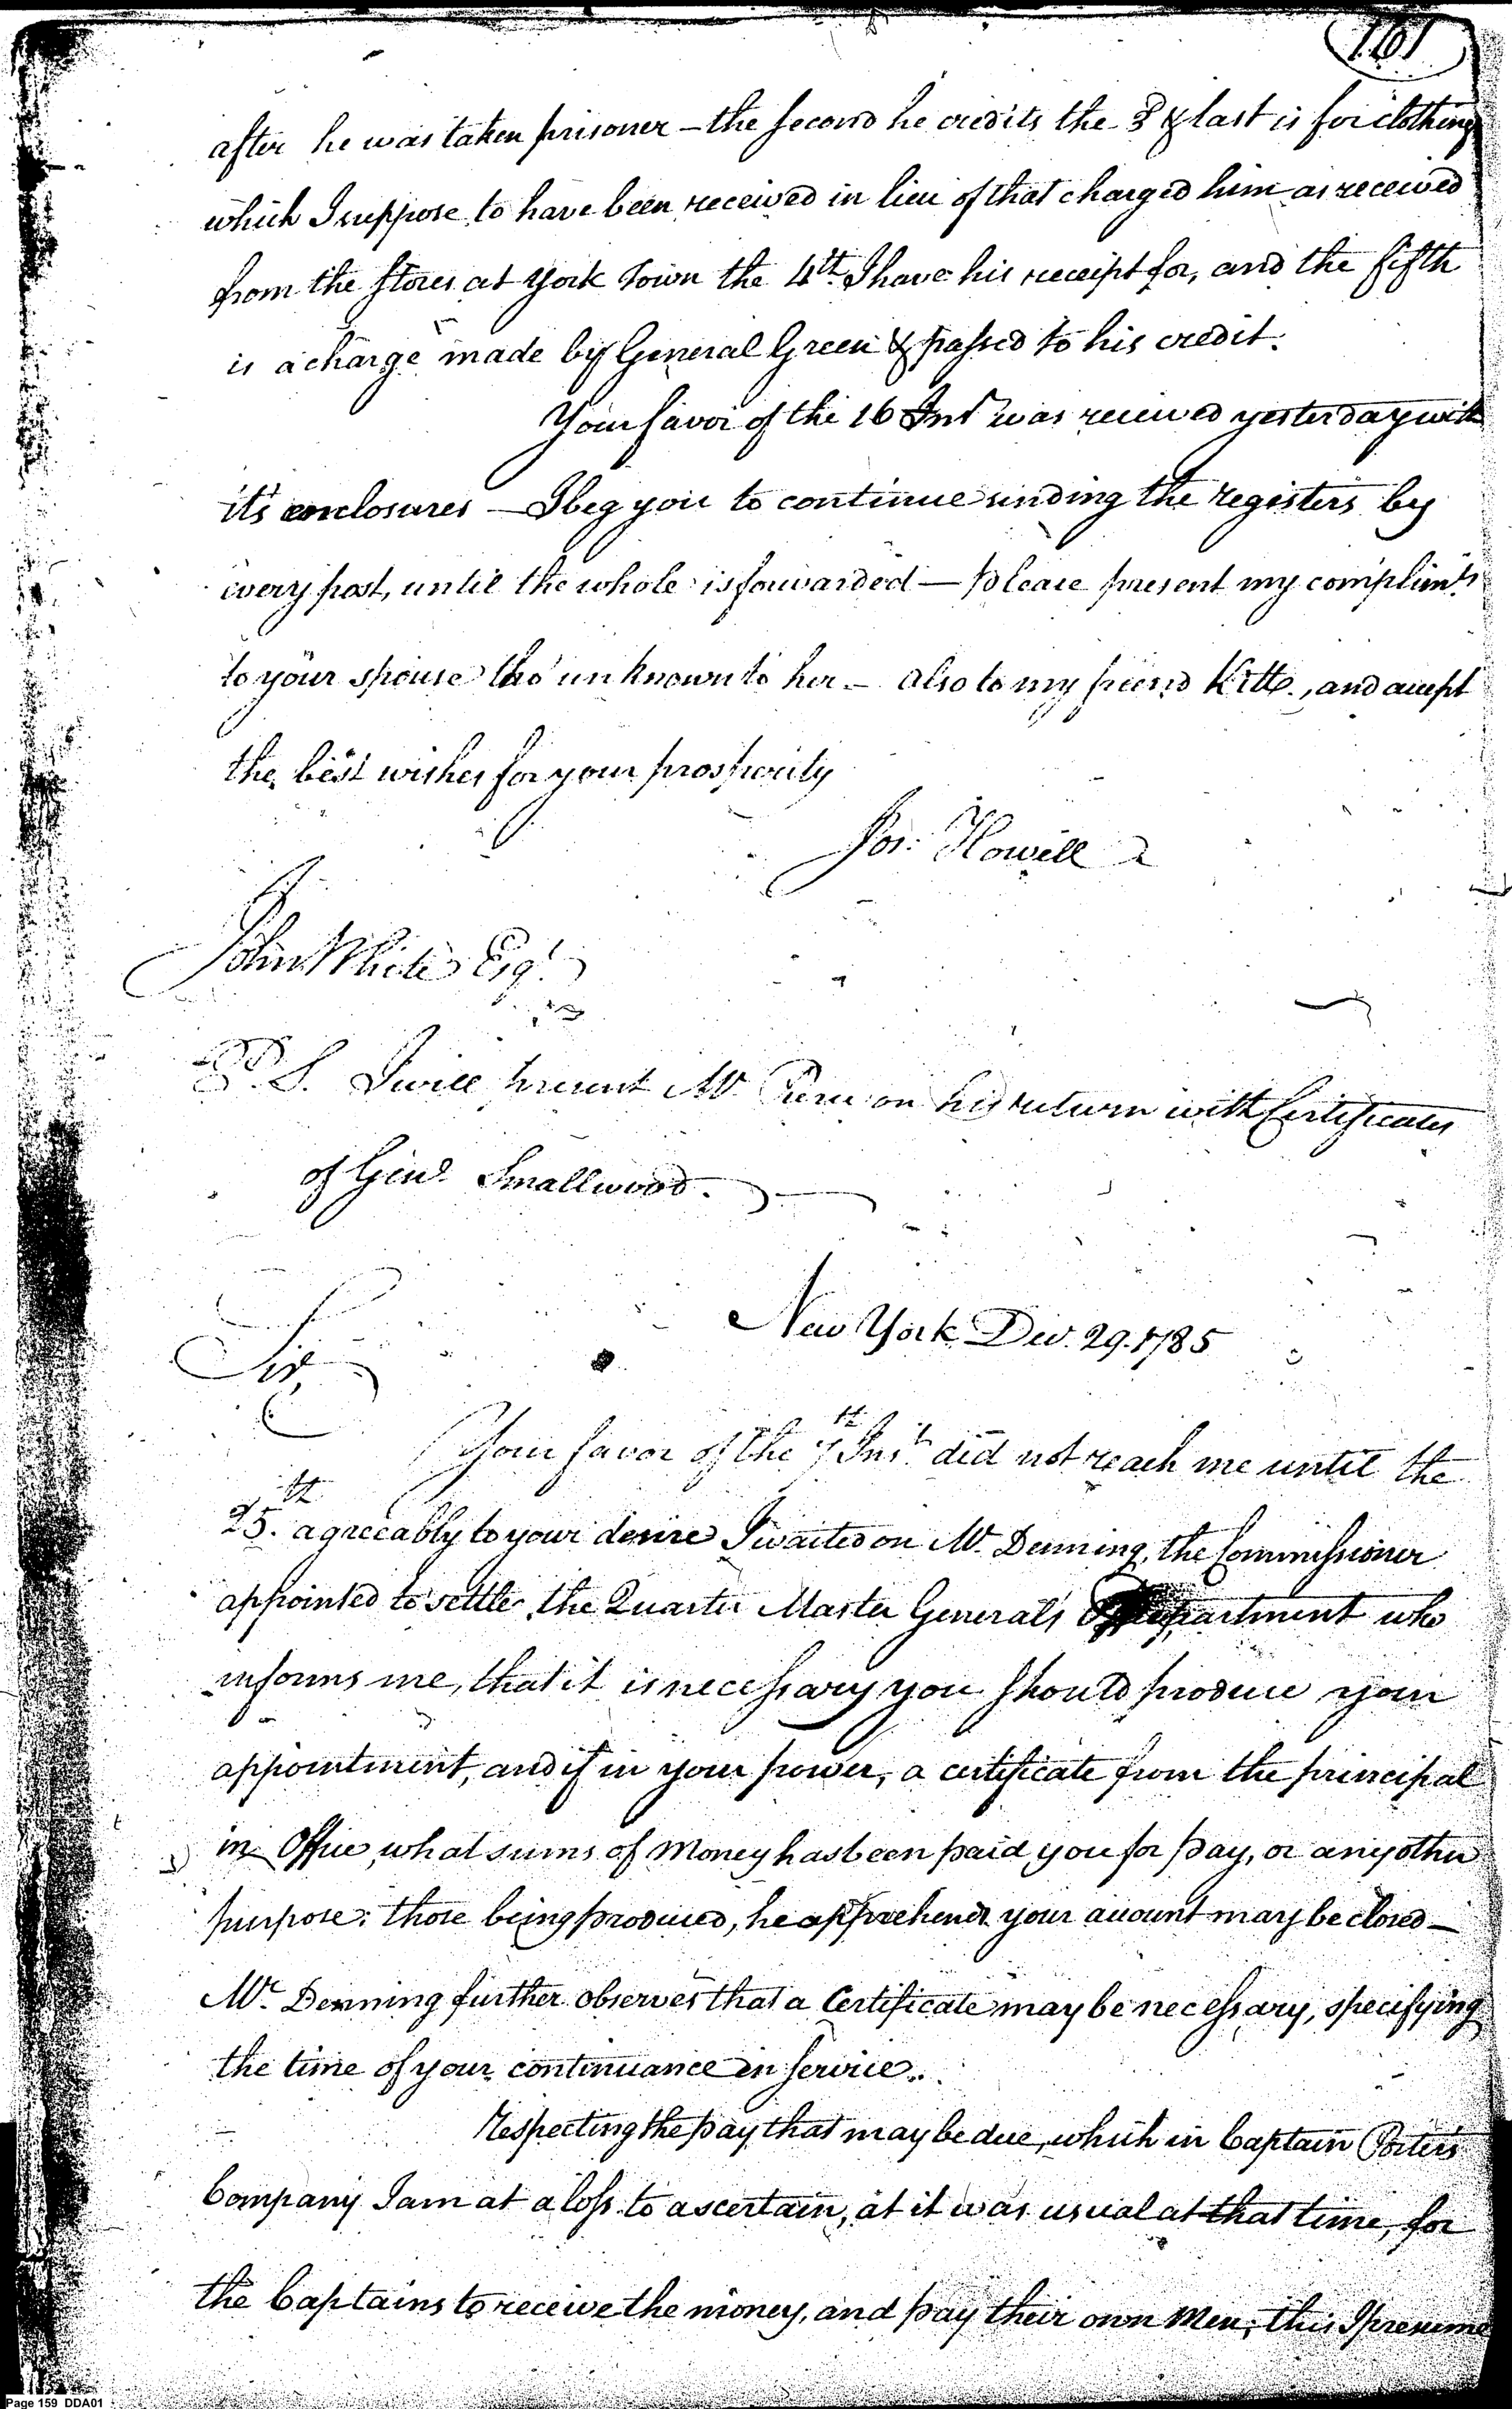 161
after he was taken prisoner – the second he credits the 3d & last is for clothing
which I suppose to have been received in lieu of that charged him as received
from the Stores at York Town the 4th I have his receipt for, and the fifth
is a charge made by General Green & passed to his credit.
Your favor of the 16 Inst was received yesterday with
it's enclosures – I beg you to continue sending the registers by
every post, until the whole is forwarded – Please present my complimts
to your spouse tho' unknown to her – also to my friend Kitts, and accept
the best wishes for your prosperity
Jos: Howell
John White Esqr
P.S. I will present Mr on his return with Certificates
of Genl Smallwood.
New York Dec. 29. 1785
Sir,
Your favor of the 7th Inst did not reach me until the
25th. agreeably to your desire I waited on Mr. Denning, the Commissioner
appointed to settle the Quarter Master General's Department who
informs me, that it is necessary you should produce your
appointment, and if in your power, a certificate from the principal
in Office, what sums of Money has been paid you for pay, or any other
purpose: those being produced, he apprehends your account may be closed –
Mr. Denning further observes that a Certificate may be necessary, specifying
the time of your continuance in service.
Respecting the pay that may be due, which in Captain Porter's
Company I am at a loss to ascertain, at it was usual at that time, for
the Captains to receive the money, and pay their own Men; this I presume
Page 159 DDA01